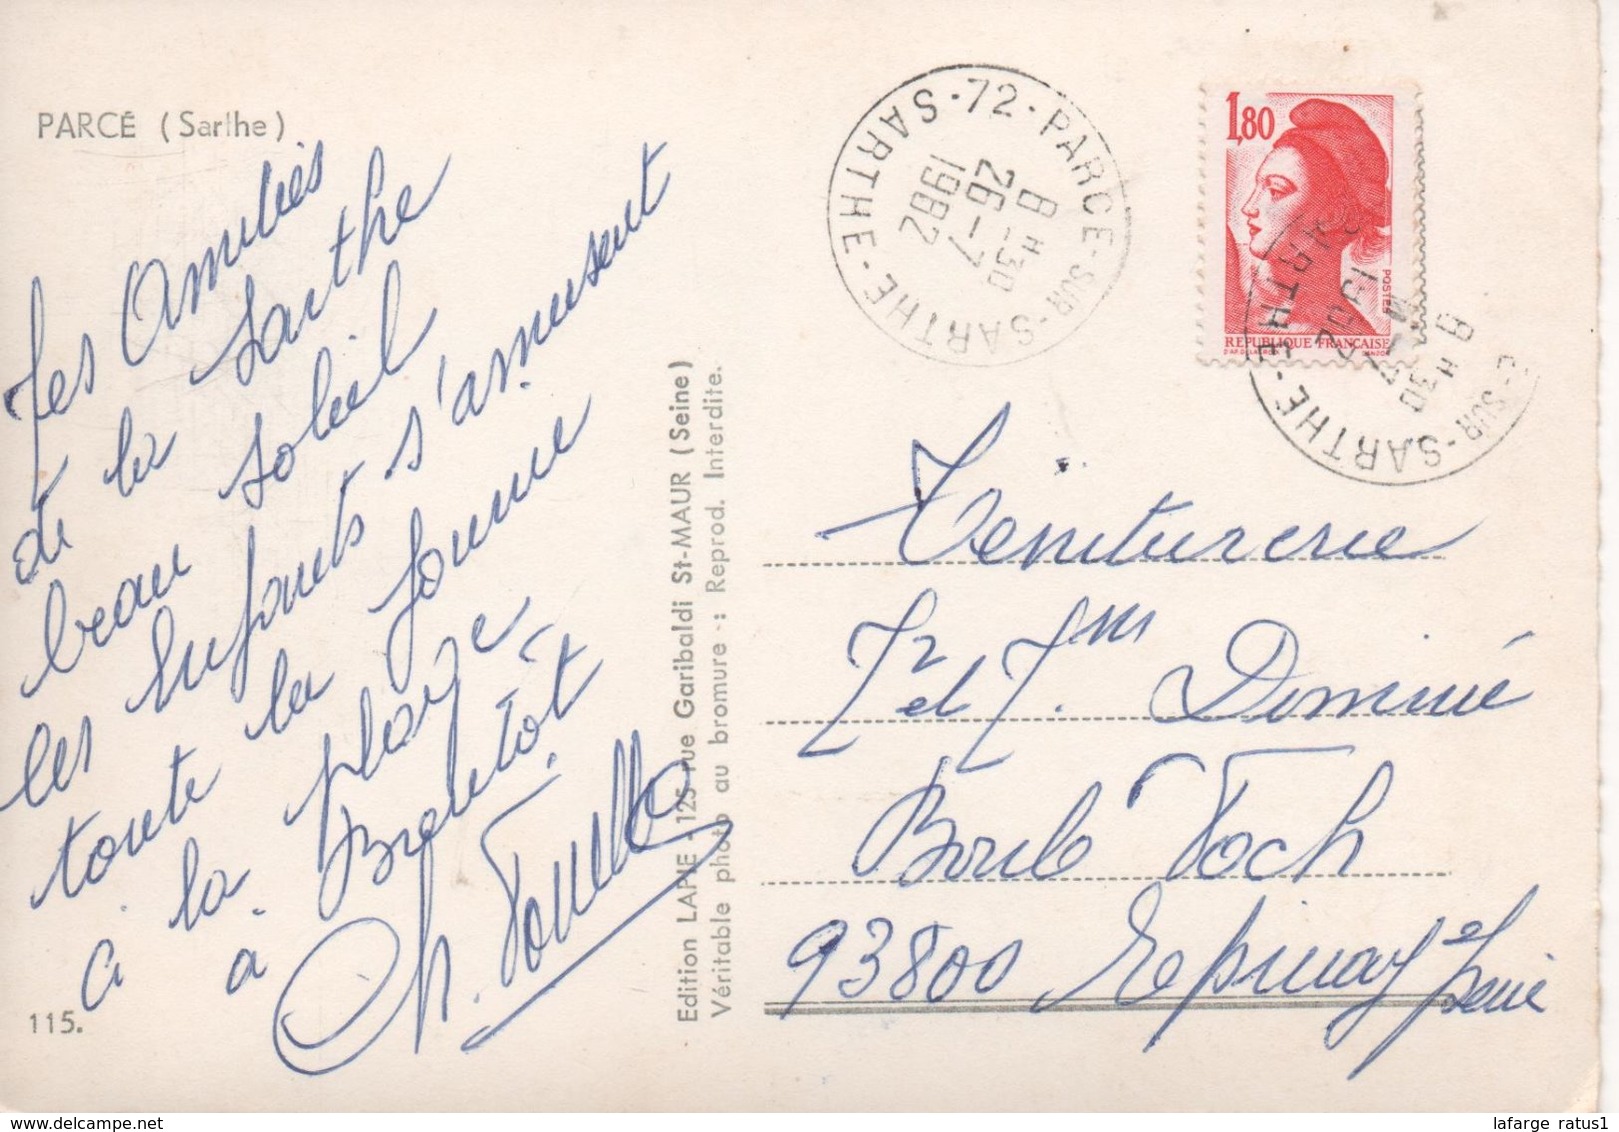 PARCÉ (Sarthe)
Les Amitiés
de la Sarthe
beau soleil
les Enfants s'amusent
toute la
à la plage
à Bientôt
115.
Edition LAPIE - 125 rue Garibaldi St-MAUR (Seine)
Véritable photo au bromure : Reprod. Interdite.
72 - PARCE-SUR-SARTHE - SARTHE
8 H 30
26 - 7
1982
1,80
POSTES
REPUBLIQUE FRANÇAISE
8 H 30
SUR-SARTHE
Teinturerie
et Dominé
Boul Foch
93800 Epinay s/ Seine
lafarge ratus1